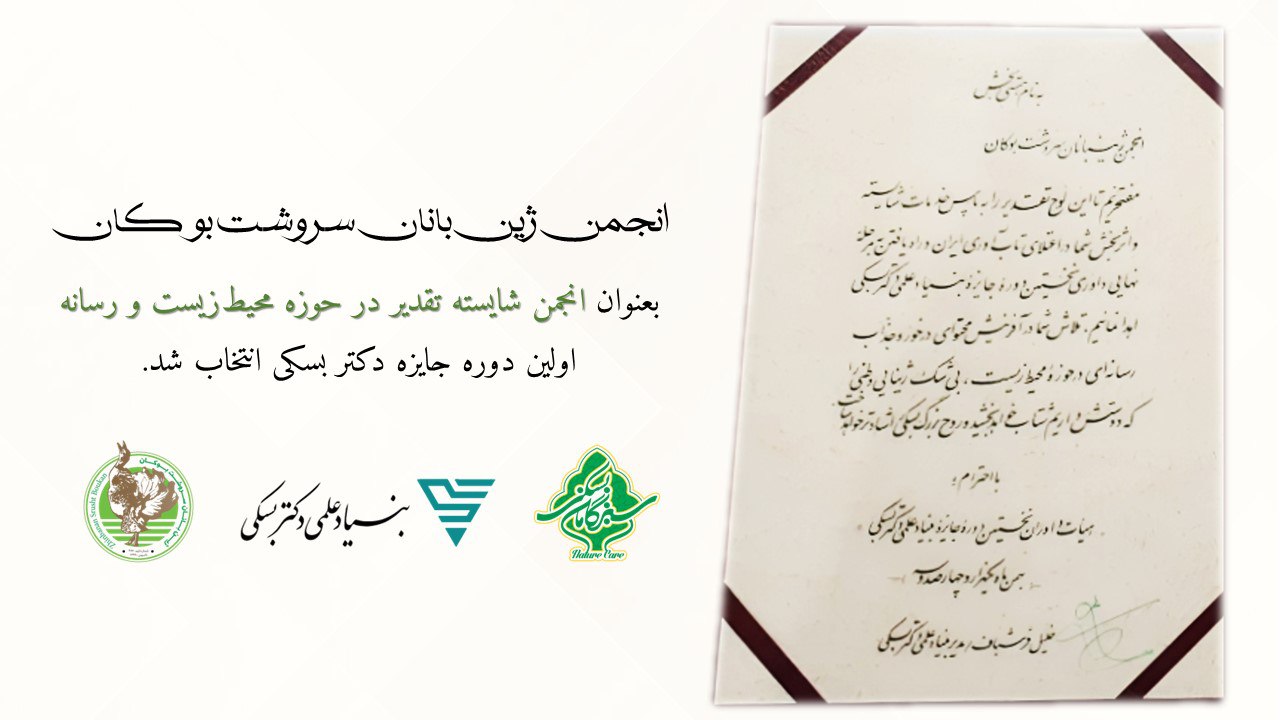 انجمن ژین بانان سروشت بوکان
بعنوان انجمن شایسته تقدیر در حوزه محیط‌زیست و رسانه
اولین دوره جایزه دکتر بسکی انتخاب شد.
Zhinbanan Srusht Boukan
بنیاد علمی دکتر بسکی
سبزگامان بسکی
Nature Care
به نام هستی بخش
انجمن ژین بانان سروشت بوکان
مفتخریم تا این لوح تقدیر را به پاس خدمات شایسته
و اثربخش شما در اعتلای تاب آوری ایران و راه یافتن به مرحلهٔ
نهایی داوری نخستین دورهٔ جایزهٔ بنیاد علمی دکتر بسکی
اهدا نمائیم. تلاش شما در آفرینش محتوای درخور و جذاب
رسانه‌ای در حوزهٔ محیط زیست، بی شک زیبایی وطنی را
که دوستش داریم شتاب خواهد بخشید و روح بزرگ بسکی را شادتر خواهد ساخت
با احترام؛
هیات داوران نخستین دورهٔ جایزهٔ بنیاد علمی دکتر بسکی
بهمن ماه یکهزار و چهارصد و
خلیل فرشباف، مدیر بنیاد علمی دکتر بسکی